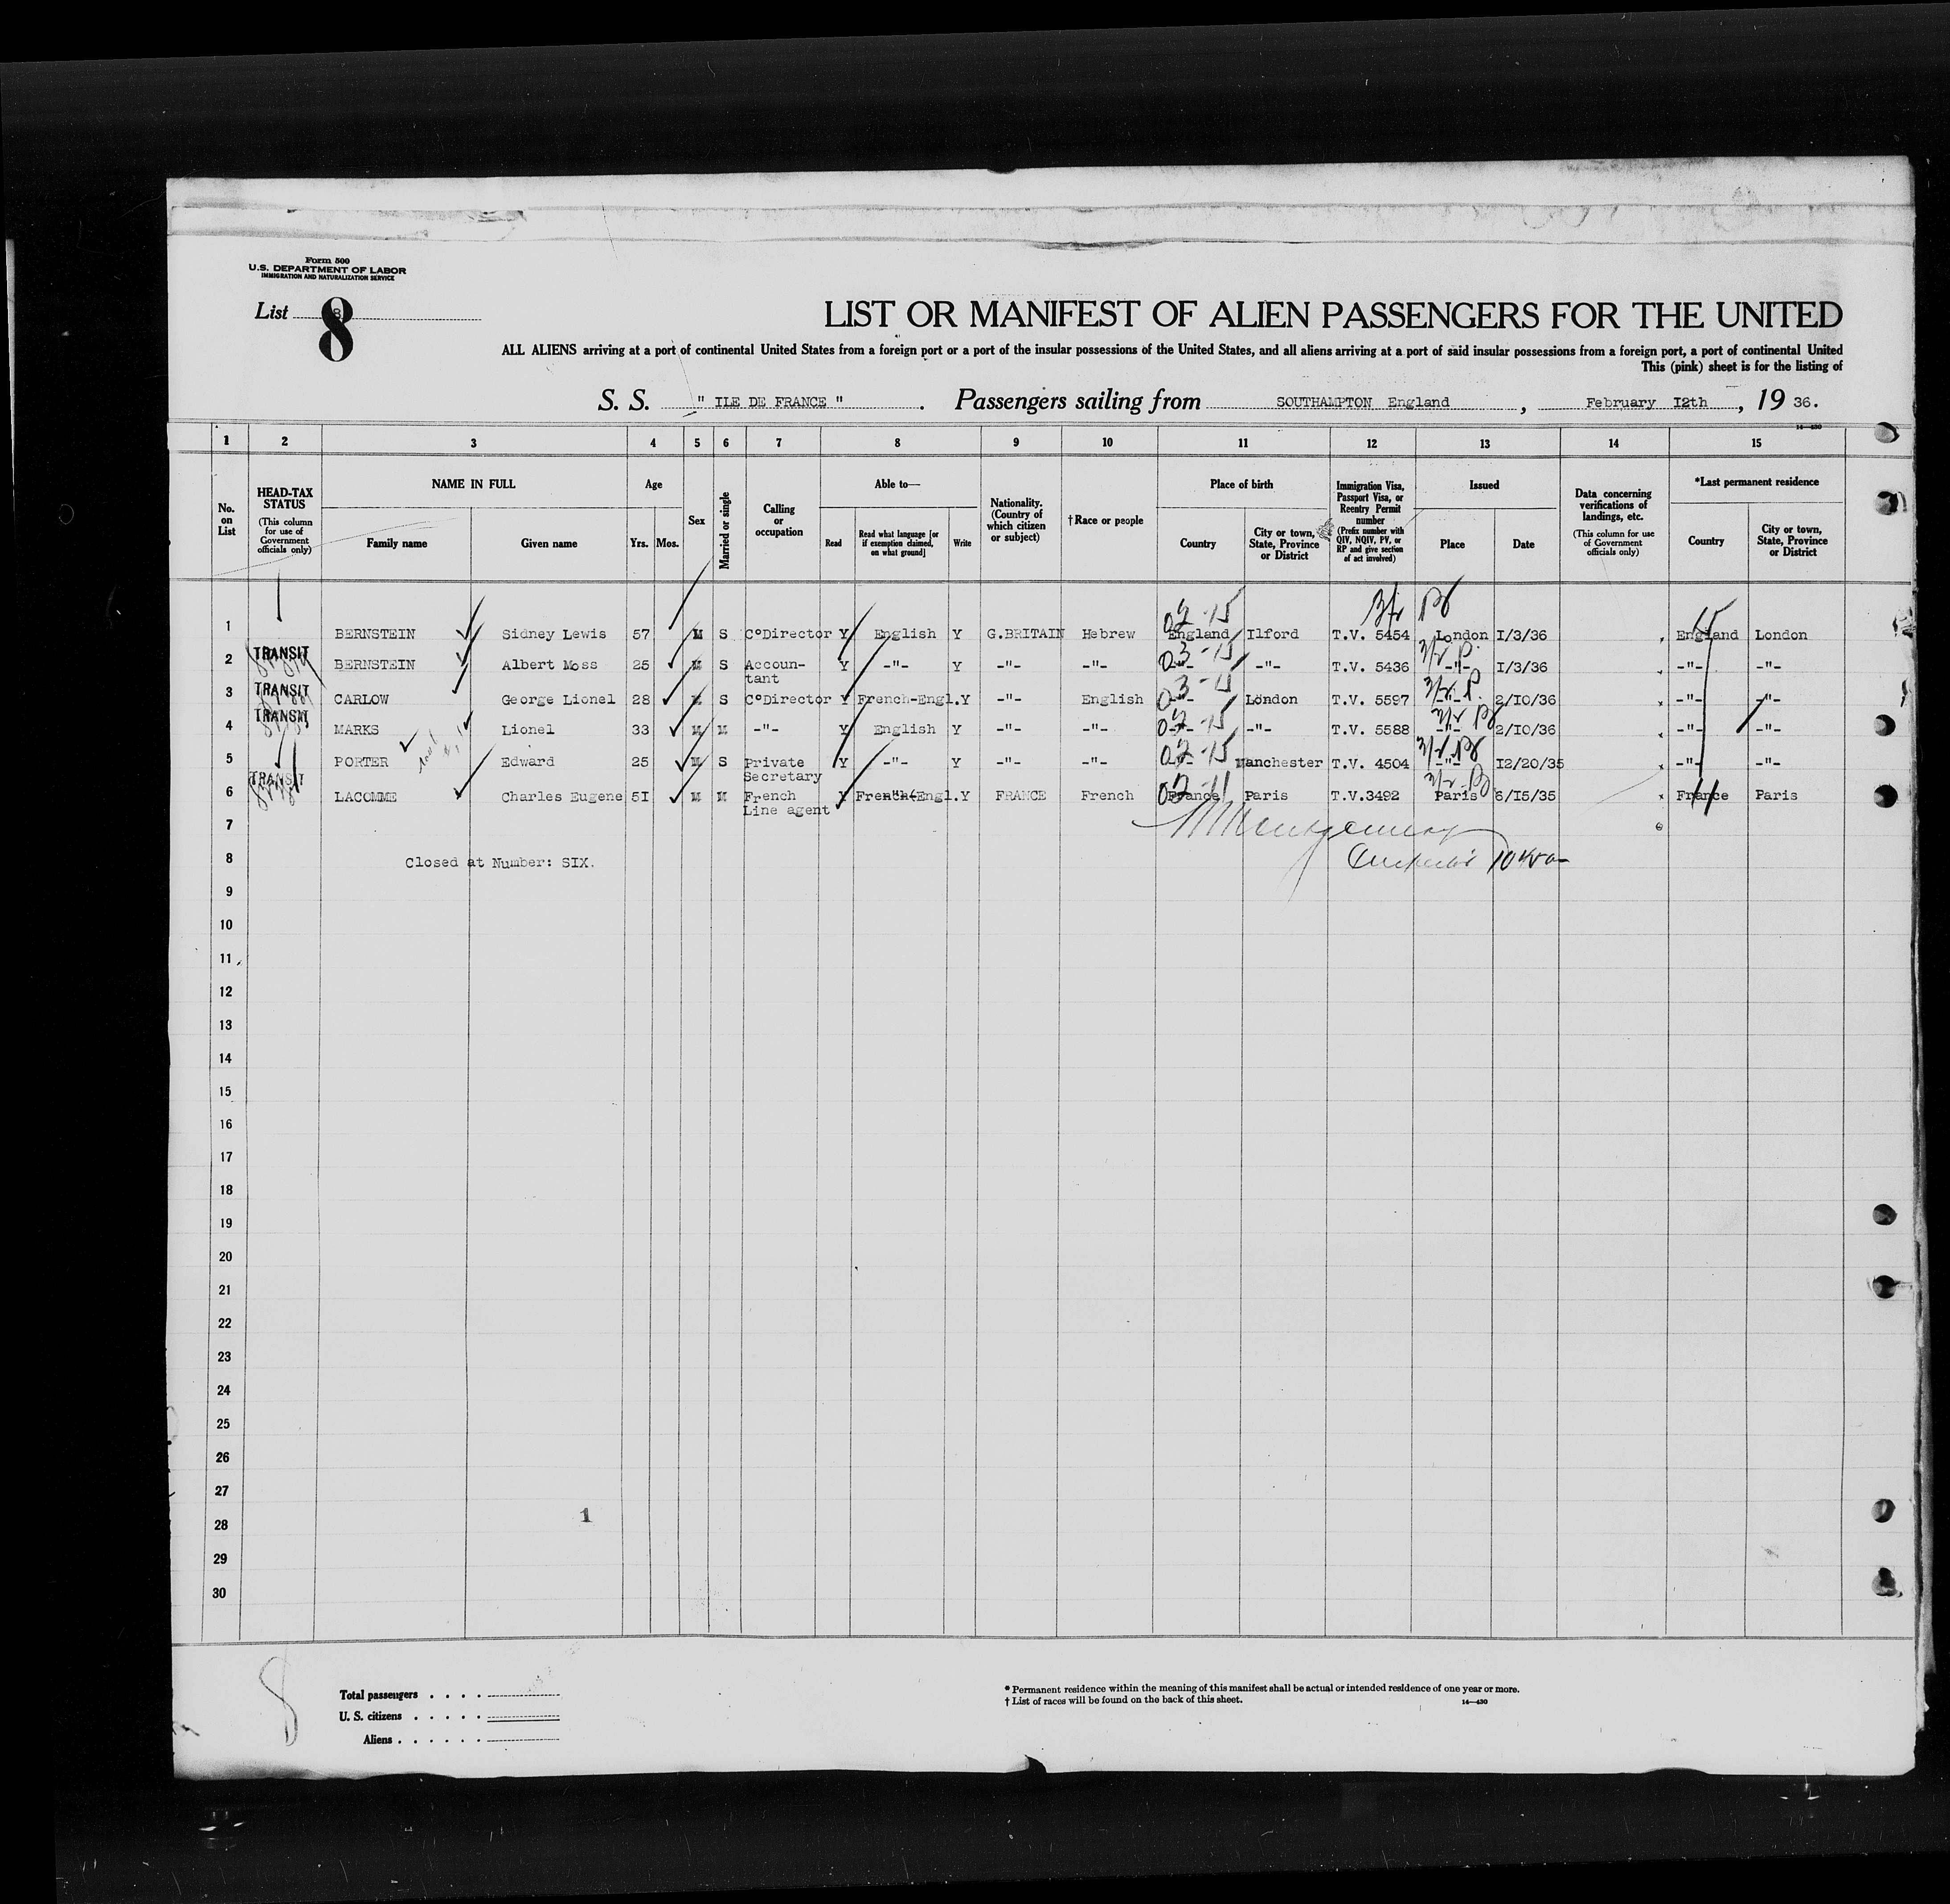 Form 500
U.S. DEPARTMENT OF LABOR
IMMIGRATION AND NATURALIZATION SERVICE
List 8
8
LIST OR MANIFEST OF ALIEN PASSENGERS FOR THE UNITED
ALL ALIENS arriving at a port of continental United States from a foreign port or a port of the insular possessions of the United States, and all aliens arriving at a port of said insular possessions from a foreign port, a port of continental United
This (pink) sheet is for the listing of
S. S. " ILE DE FRANCE " . Passengers sailing from SOUTHAMPTON England , February I2th , 19 36.
14—430
1 2 3 4 5 6 7 8 9 10 11 12 13 14 15
No. on List
HEAD-TAX STATUS
(This column for use of Government officials only)
NAME IN FULL
Family name
Given name
Age
Yrs.
Mos.
Sex
Married or single
Calling or occupation
Able to—
Read
Read what language [or if exemption claimed, on what ground]
Write
Nationality. (Country of which citizen or subject)
† Race or people
Place of birth
Country
City or town, State, Province or District
Immigration Visa, Passport Visa, or Reentry Permit number
(Prefix number with QIV, NQIV, PV, or RP and give section of act involved)
Issued
Place
Date
Data concerning verifications of landings, etc.
(This column for use of Government officials only)
*Last permanent residence
Country
City or town, State, Province or District
02-15 15
1 BERNSTEIN Sidney Lewis 57 M S C°Director Y English Y G.BRITAIN Hebrew England Ilford T.V. 5454 London I/3/36 England London
TRANSIT 03-15
2 BERNSTEIN Albert Moss 25 M S Accoun- Y -"- Y -"- -"- -"- -"- T.V. 5436 -"- I/3/36 -"- -"-
tant
TRANSIT 03-15
3 CARLOW George Lionel 28 M S C°Director Y French-Engl. Y -"- English -"- London T.V. 5597 -"- 2/I0/36 -"- -"-
TRANSIT 02-15
4 MARKS Lionel 33 M M -"- Y English Y -"- -"- -"- -"- T.V. 5588 -"- 2/I0/36 -"- -"-
02-15
5 PORTER Edward 25 M S Private Y -"- Y -"- -"- -"- Manchester T.V. 4504 -"- I2/20/35 -"- -"-
Secretary
TRANSIT 02-11 11
6 LACOMME Charles Eugene 5I M M French Y French-Engl. Y FRANCE French France Paris T.V.3492 Paris 6/I5/35 France Paris
Line agent
7 Montgomery
8 Closed at Number: SIX.
9
10
11
12
13
14
15
16
17
18
19
20
21
22
23
24
25
26
27
28 1
29
30
8
Total passengers
U. S. citizens
Aliens
* Permanent residence within the meaning of this manifest shall be actual or intended residence of one year or more.
† List of races will be found on the back of this sheet.
14—430